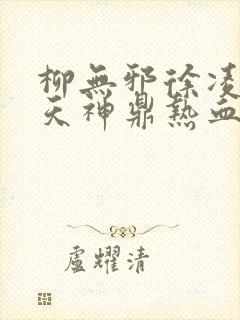 柳無邪徐凌
天神鼎熱血
盧耀清